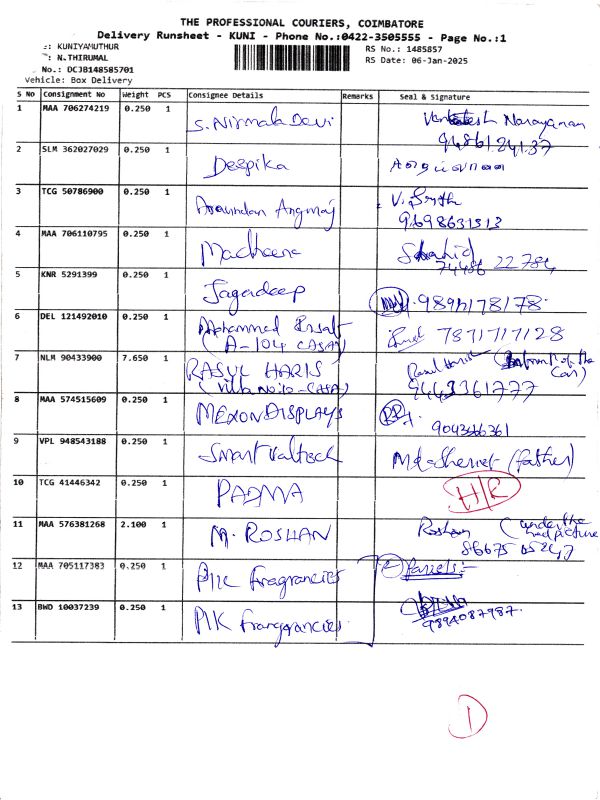 THE PROFESSIONAL COURIERS, COIMBATORE
Delivery Runsheet - KUNI - Phone No.:0422-3505555 - Page No.:1
: KUNIYAMUTHUR RS No.: 1485857
: N.THIRUMAL RS Date: 06-Jan-2025
No.: DCJB148585701
Vehicle: Box Delivery
S No Consignment No Weight PCS Consignee Details Remarks Seal & Signature
1 MAA 706274219 0.250 1 S. Nirmala Devi Venkatesh Narayanan
94861.24137
2 SLM 362027029 0.250 1 Deepika
3 TCG 50786900 0.250 1 Aravindan Angmaj V.
9698631313
4 MAA 706110795 0.250 1 Madheena Shahid
74486 22784
5 KNR 5291399 0.250 1 Jagadeep 9894178178.
6 DEL 121492010 0.250 1 Mohammed 7871717128
(A-104 CASA)
7 NLM 90433900 7.650 1 RASUL HARIS Rasul Haris of the
(Villa No:10-CASA) 9443361777 Car)
8 MAA 574515609 0.250 1 MEXON DISPLAYS
9 VPL 948543188 0.250 1 Smart (father)
10 TCG 41446342 0.250 1 PADMA H/R
11 MAA 576381268 2.100 1 M. ROSHAN Roshan (under the
86675 05247 picture
12 MAA 705117383 0.250 1 PIK Fragrancies (2) Parcels:-
13 BWD 10037239 0.250 1 PIK Frangrancies
9894087987.
1